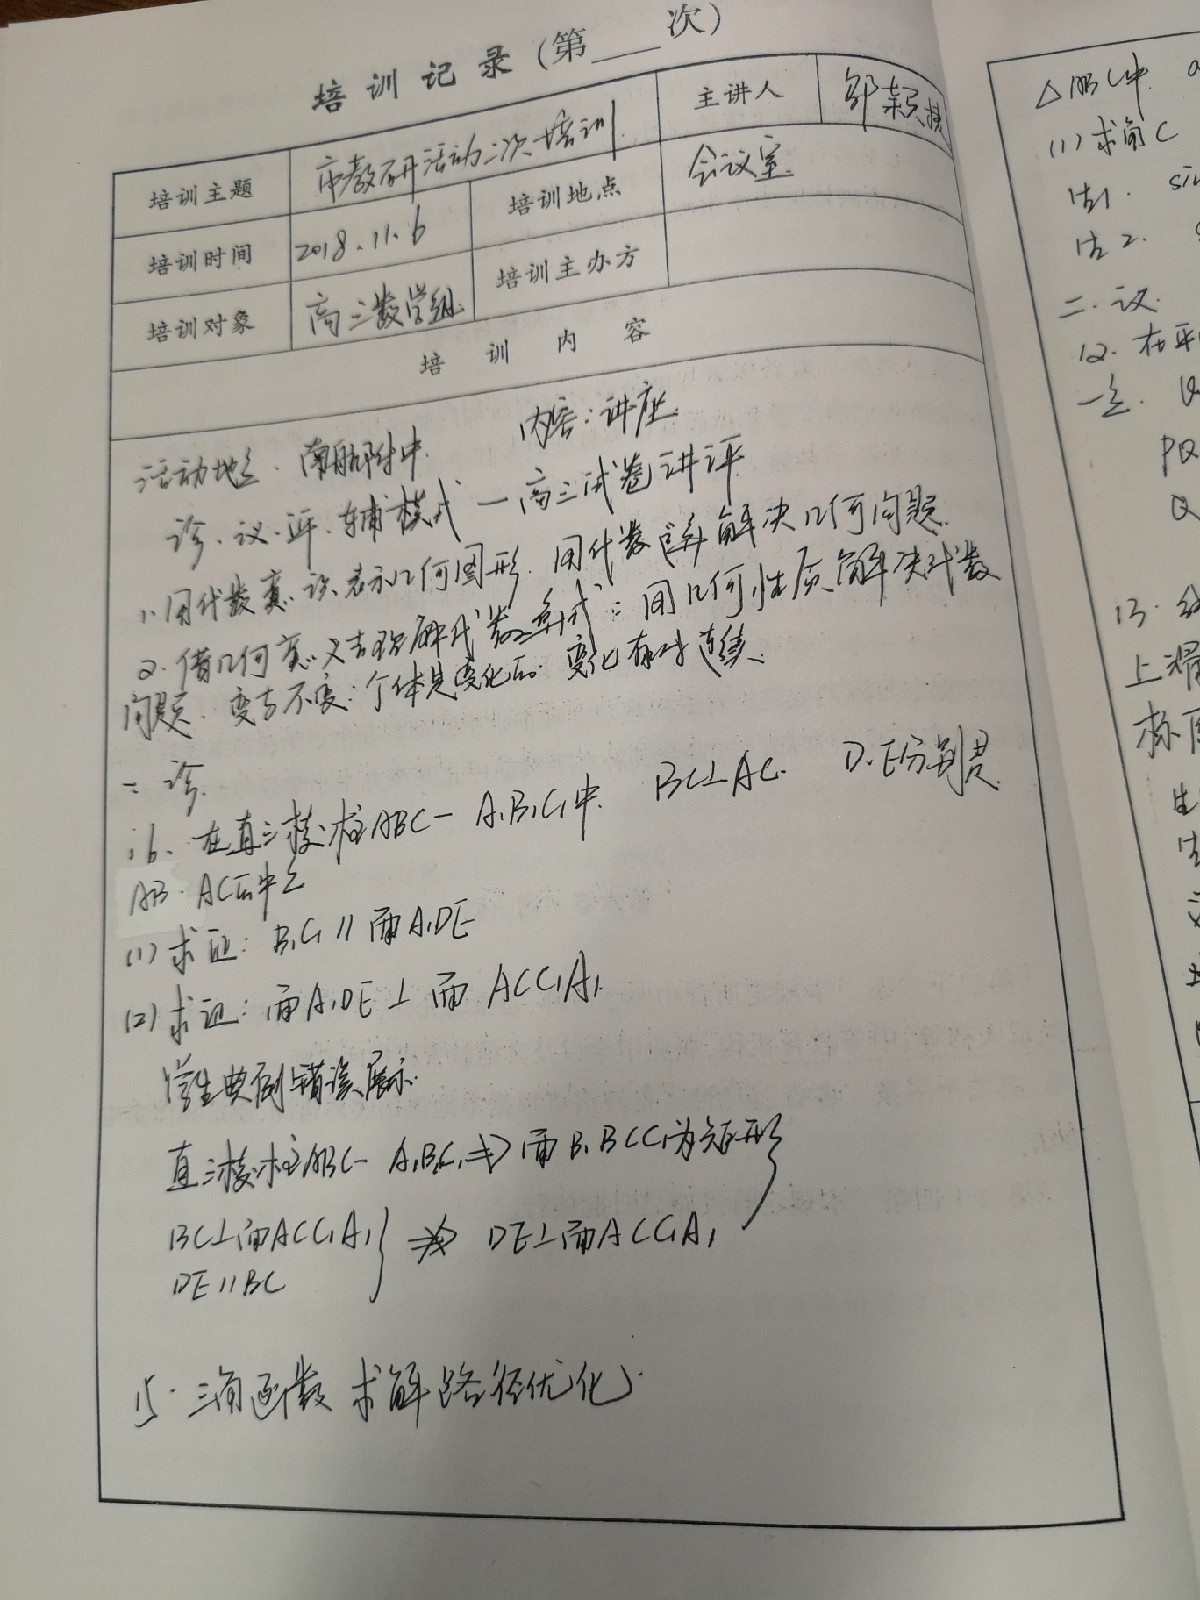 培训记录(第___次)
培训主题 市教研活动二次培训 主讲人 邹颖
培训时间 2018.11.6 培训地点 会议室
培训对象 高三数学组 培训主办方
培训内容
活动地点:南航附中. 内容:讲座
诊.议.评.辅模式—高三试卷讲评
1.用代数意识表示几何图形.用代数 解决几何问题.
2.借几何意义去理解代数 :用几何性质解决代数
问题.变与不变:个体是变化的.变化 连续.
一诊.
16.在直三棱柱ABC-A₁B₁C₁中. BC⊥AC. D.E分别是
AB.AC的中点
(1)求证:B₁C₁∥面A₁DE
(2)求证:面A₁DE⊥面ACC₁A₁.
学生典例错误展示.
直三棱柱ABC-A₁B₁C₁⇏面B₁BCC₁为矩形
BC⊥面ACC₁A₁ } ⇏ DE⊥面ACC₁A₁
DE∥BC
15.三角函数求解路径优化.
△ABC中.
(1)求角C
法1. sin
法2.
二.议.
12.在平
Q
PQ
Q
13.
上
标